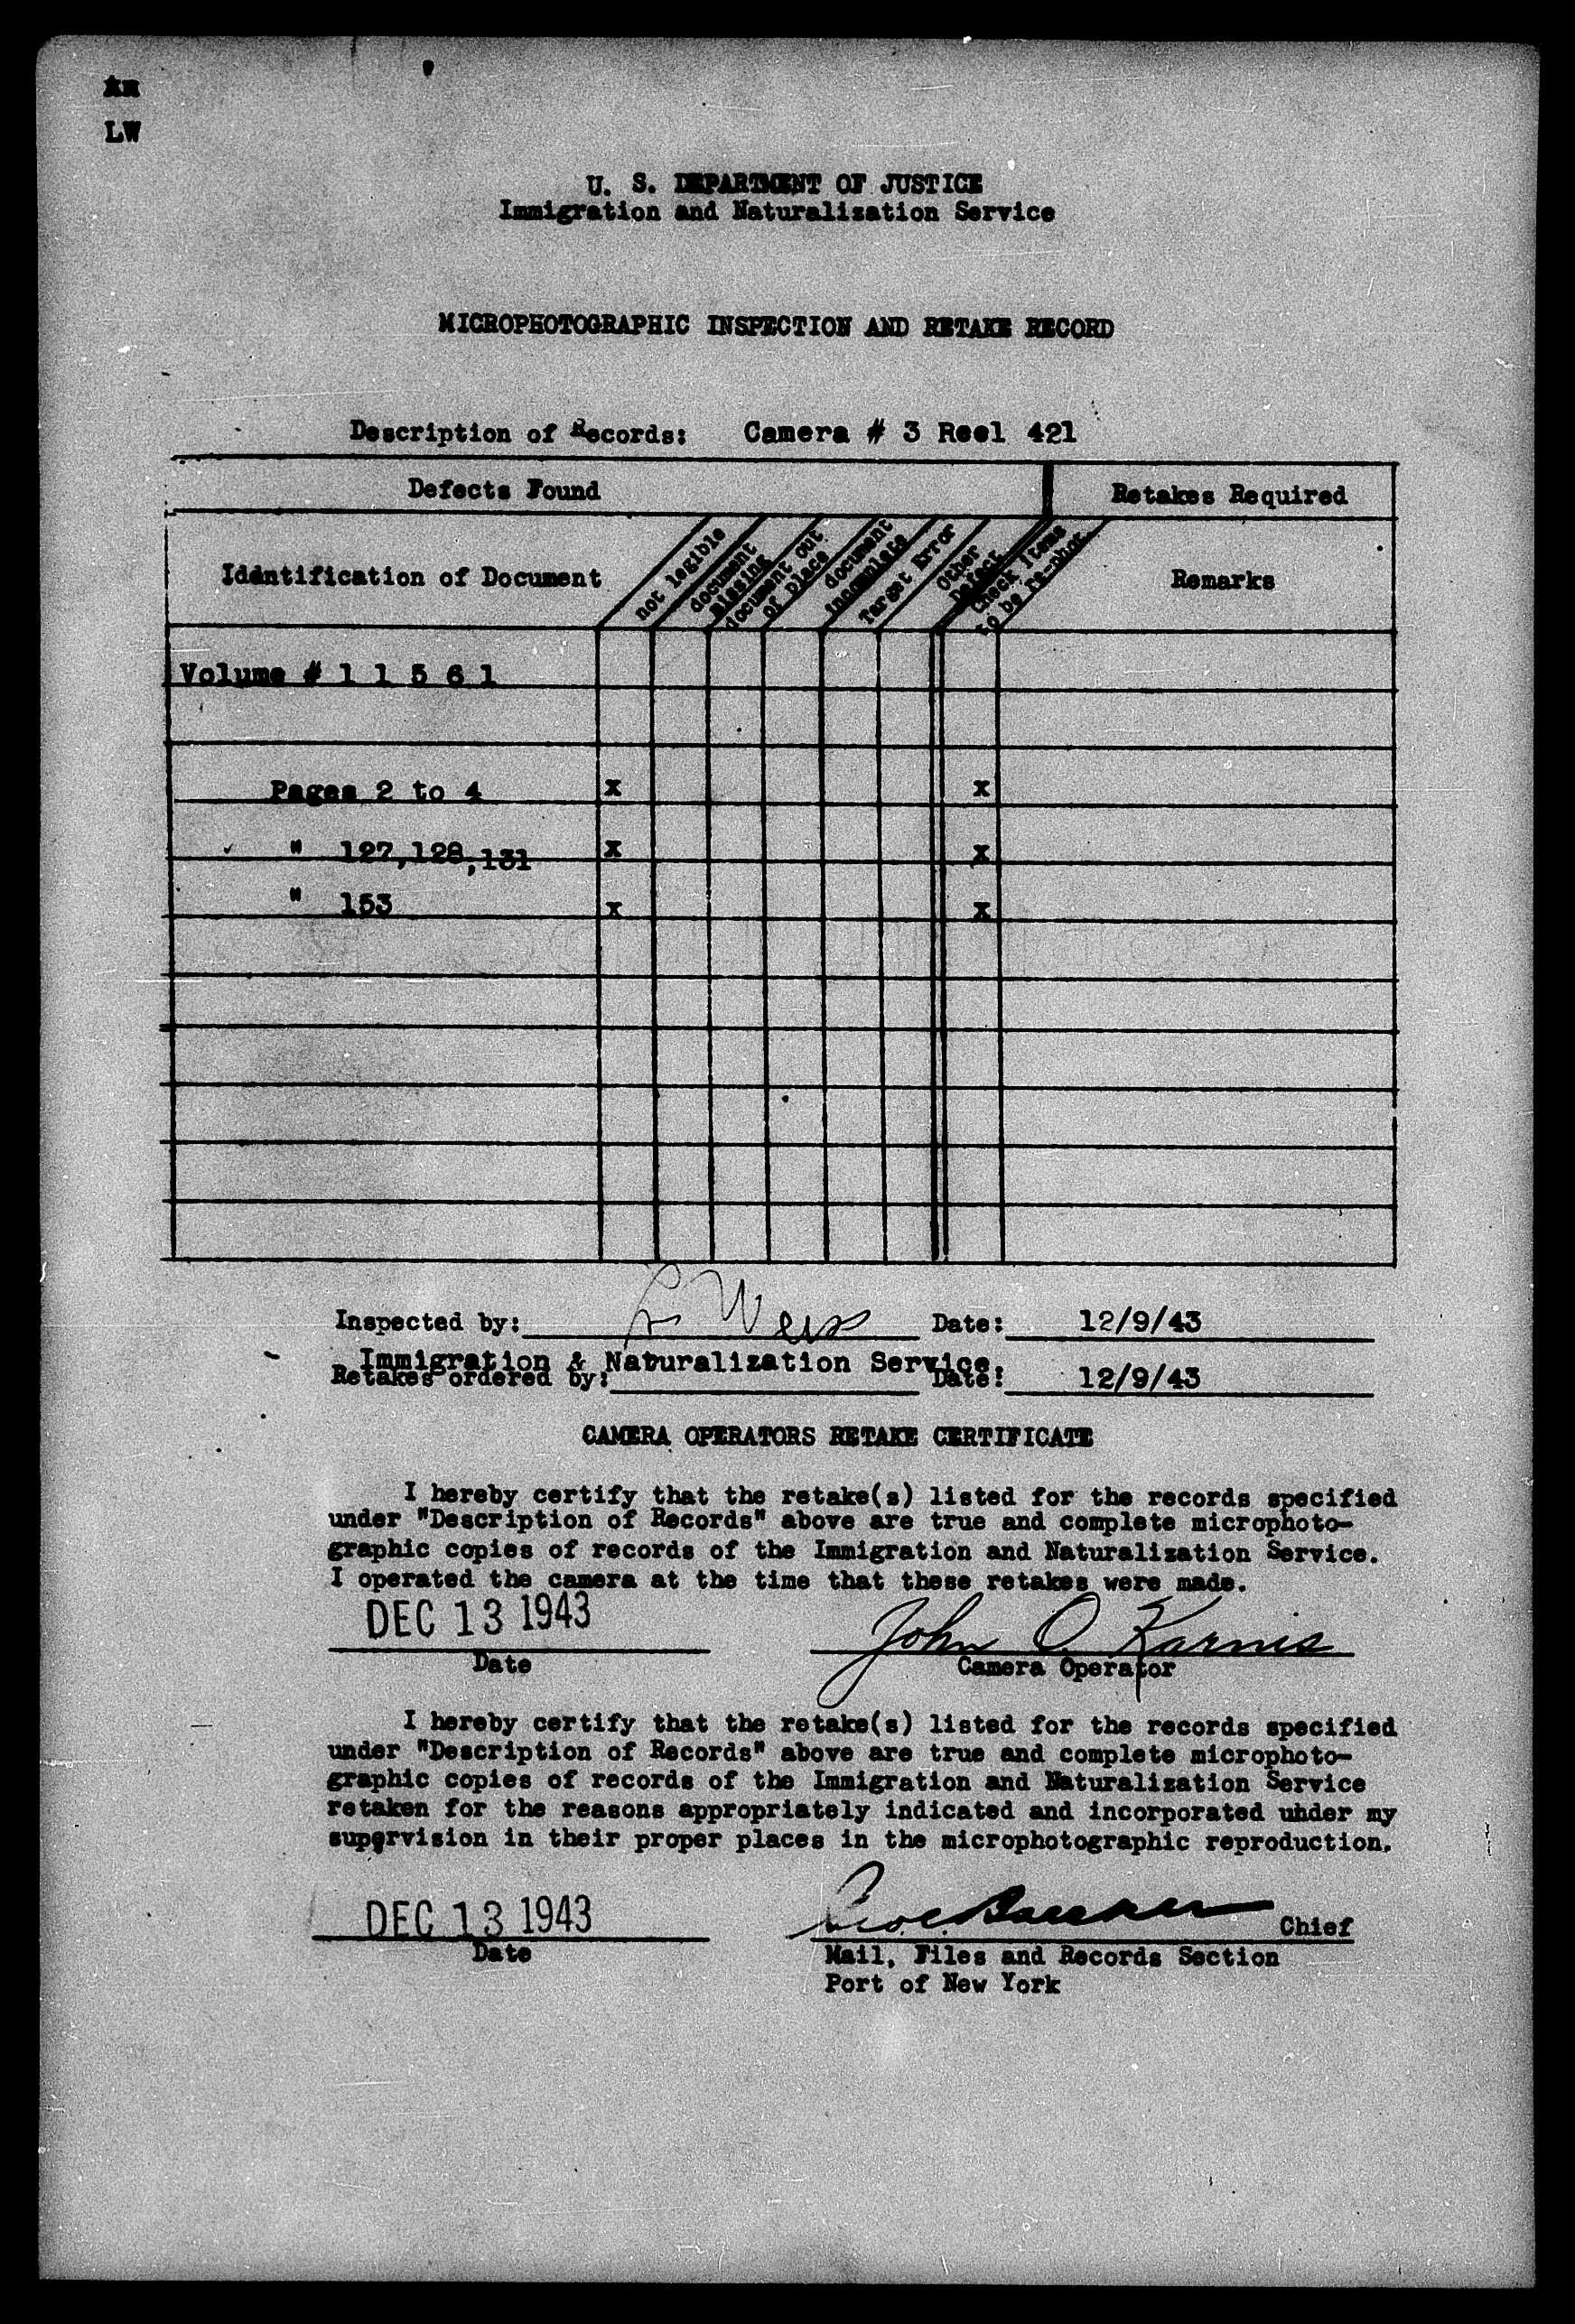 LW
U. S. DEPARTMENT OF JUSTICE
Immigration and Naturalization Service
MICROPHOTOGRAPHIC INSPECTION AND RETAKE RECORD
Description of Records: Camera # 3 Reel 421
Defects Found
Retakes Required
Identification of Document
not legible
document missing
document out of place
document incomplete
Target Error
Other Defect
Check Items to be re-phot.
Remarks
Volume # 1 1 5 6 1
Pages 2 to 4 x x
" 127,128,131 x x
" 153 x x
Inspected by: L Weiss Date: 12/9/43
Immigration & Naturalization Service.
Retakes ordered by: Date: 12/9/43
CAMERA OPERATORS RETAKE CERTIFICATE
I hereby certify that the retake(s) listed for the records specified
under "Description of Records" above are true and complete microphoto-
graphic copies of records of the Immigration and Naturalization Service.
I operated the camera at the time that these retakes were made.
DEC 13 1943 John O. Karnis
Date Camera Operator
I hereby certify that the retake(s) listed for the records specified
under "Description of Records" above are true and complete microphoto-
graphic copies of records of the Immigration and Naturalization Service
retaken for the reasons appropriately indicated and incorporated uhder my
supervision in their proper places in the microphotographic reproduction.
DEC 13 1943 Chief
Date Mail, Files and Records Section
Port of New York